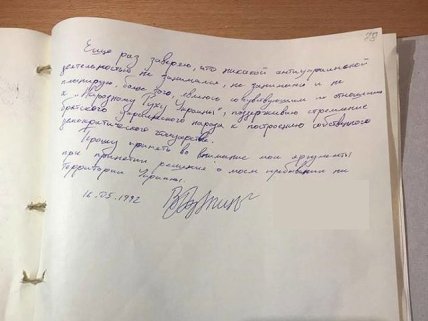 Еще раз заверяю, что никакой антиукраинской
деятельностью не занимался, не занимаюсь и не
планирую, более того, являюсь сочувствующим по отношению
к "Народному Руху Украины", поддерживаю стремление
братского украинского народа к построению собственного
демократического государства.
Прошу принять во внимание мои аргументы
при принятии решения о моем пребывании на
территории Украины.
16.05.1992